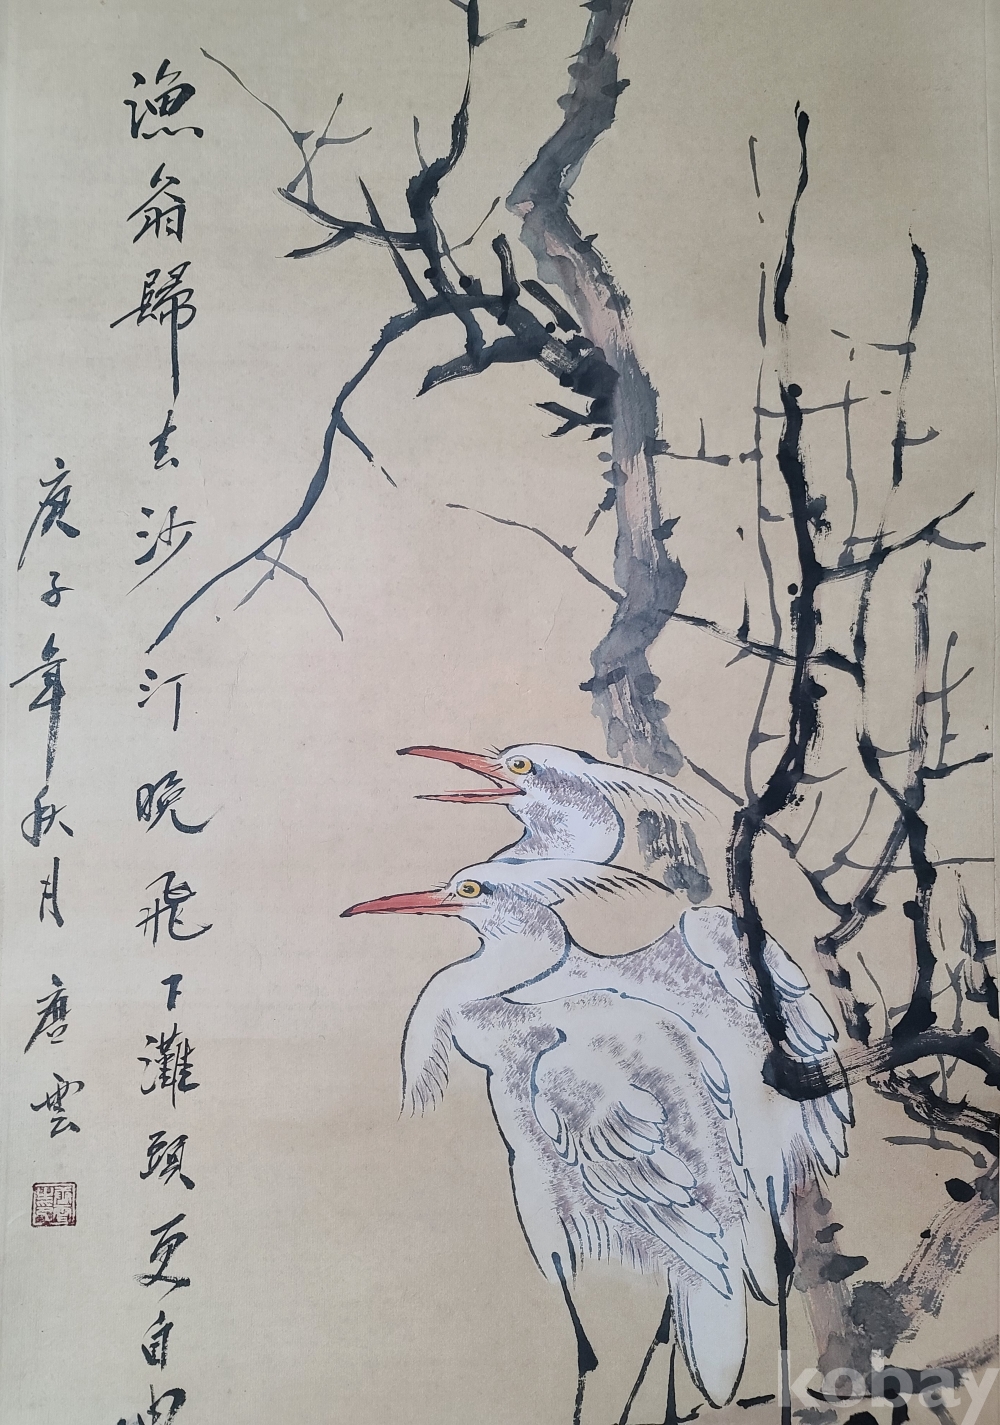 漁翁歸去沙汀晚飛下灘頭更自由
庚子年秋月唐雲
kobay